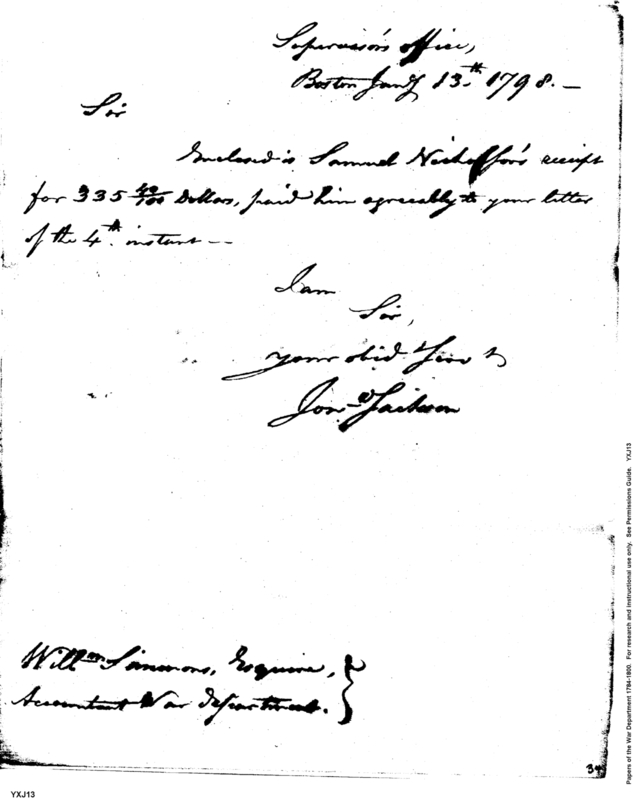 Supervisor's office,
Boston Jany 13th 1798.—
Sir
Enclosed is Samuel receipt
for 335 42/100 Dollars, paid him agreeably to your letter
of the 4th instant —
I am
Sir,
your obed Serv t
Jon Jackson
Willm Simmons, Esquire,
Accountant War Department.
34
YXJ13
Papers of the War Department 1784-1800. For research and instructional use only. See Permissions Guide. YXJ13